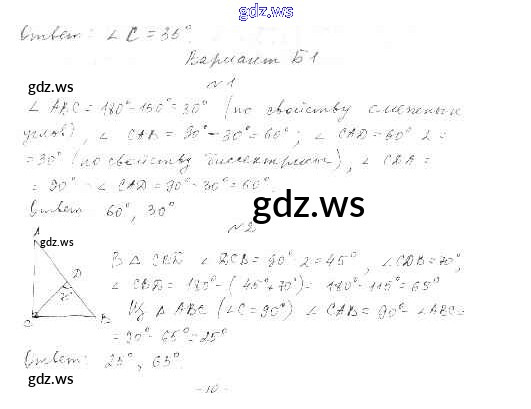 gdz.ws
Ответ: ∠C = 35°.
Вариант Б1
gdz.ws
№1
∠ABC = 180° - 150° = 30° (по свойству смежных
углов), ∠CAB = 90° - 30° = 60°; ∠CAD = 60° : 2 =
= 30° (по свойству биссектрисы), ∠CDA =
= 90° - ∠CAD = 90° - 30° = 60°.
Ответ: 60°, 30°
gdz.ws
№2
A
gdz.ws
D
70°
C
B
В ∆ CBD ∠DCB = 90° : 2 = 45°, ∠CDB = 70°,
∠CBD = 180° - (45° + 70°) = 180° - 115° = 65°
Из ∆ ABC (∠C = 90°) ∠CAB = 90° - ∠ABC =
= 90° - 65° = 25°
Ответ: 25°, 65°.
gdz.ws
gdz.ws
- 10 -